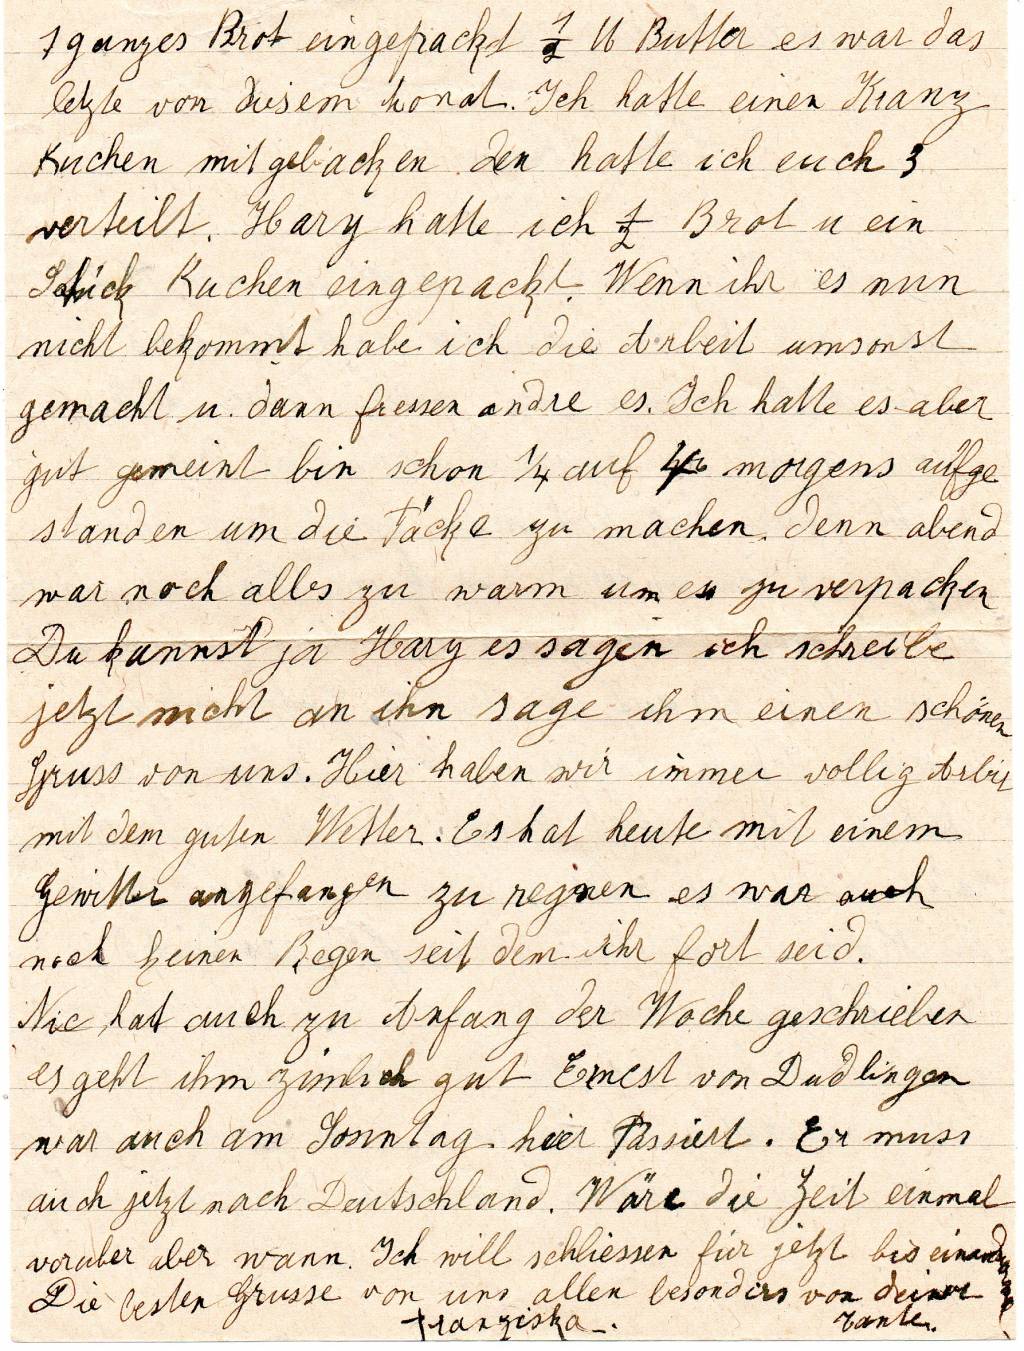 1 ganzes Brot eingepackt 1/2 ℔ Butter es war das
letzte von diesem Monat. Ich hatte einen Kranz
Kuchen mitgebacken den hatte ich euch 3
verteilt. Hary hatte ich 1/2 Brot u ein
Stück Kuchen eingepackt. Wenn ihr es nun
nicht bekommt habe ich die Arbeit umsonst
gemacht u. dann fressen andre es. Ich hatte es aber
gut gemeint bin schon 1/4 auf 4 morgens aufge
standen um die Päcke zu machen. denn abend
war noch alles zu warm um es zu verpacken
Du kannst ja Hary es sagen ich schreibe
jetzt nicht an ihn sage ihm einen schönen
Gruss von uns. Hier haben wir immer vollig Arbeit
mit dem guten Wetter. Es hat heute mit einem
Gewitter angefangen zu regnen es war auch
noch keinen Regen seit dem ihr fort seid.
Nic hat auch zu Anfang der Woche geschrieben
es geht ihm zimlich gut Ernest von Dudlingen
war auch am Sonntag hier Passiert. Er muss
auch jetzt nach Deutschland. Wäre die Zeit einmal
voruber aber wann. Ich will schliessen für jetzt bis
Die besten Grusse von uns allen besonders von deiner
Franziska Tante.